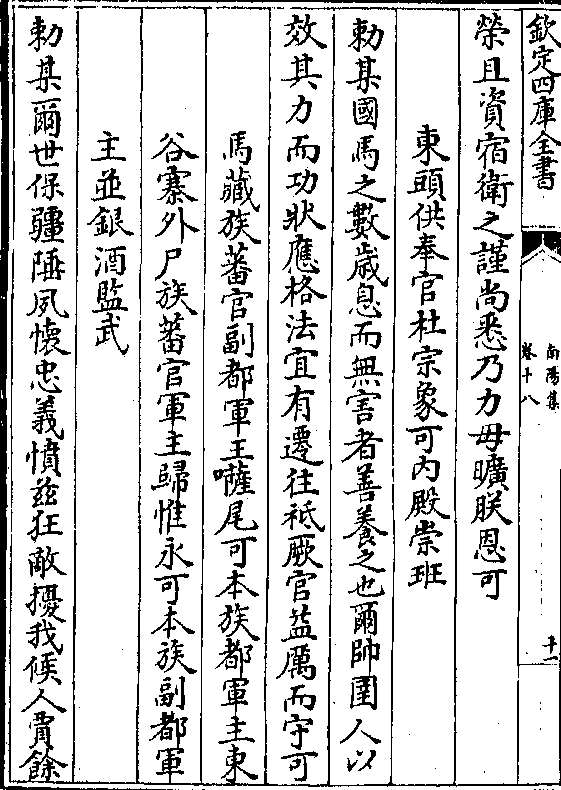 欽定四庫全書
南陽集
卷十八
十一
榮且資宿衛之謹尚悉乃力毋曠朕恩可
東頭供奉官杜宗象可內殿崇班
勅某國馬之數歲息而無害者善養之也爾帥圉人以
效其力而功狀應格法宜有遷往祗厥官益厲而守可
馬藏族蕃官副都軍主𠿝尾可本族都軍主東
谷寨外尸族蕃官軍主歸惟永可本族副都軍
主並銀酒監武
勅某爾世保疆陲夙懷忠義憤茲狂敵擾我候人賈餘